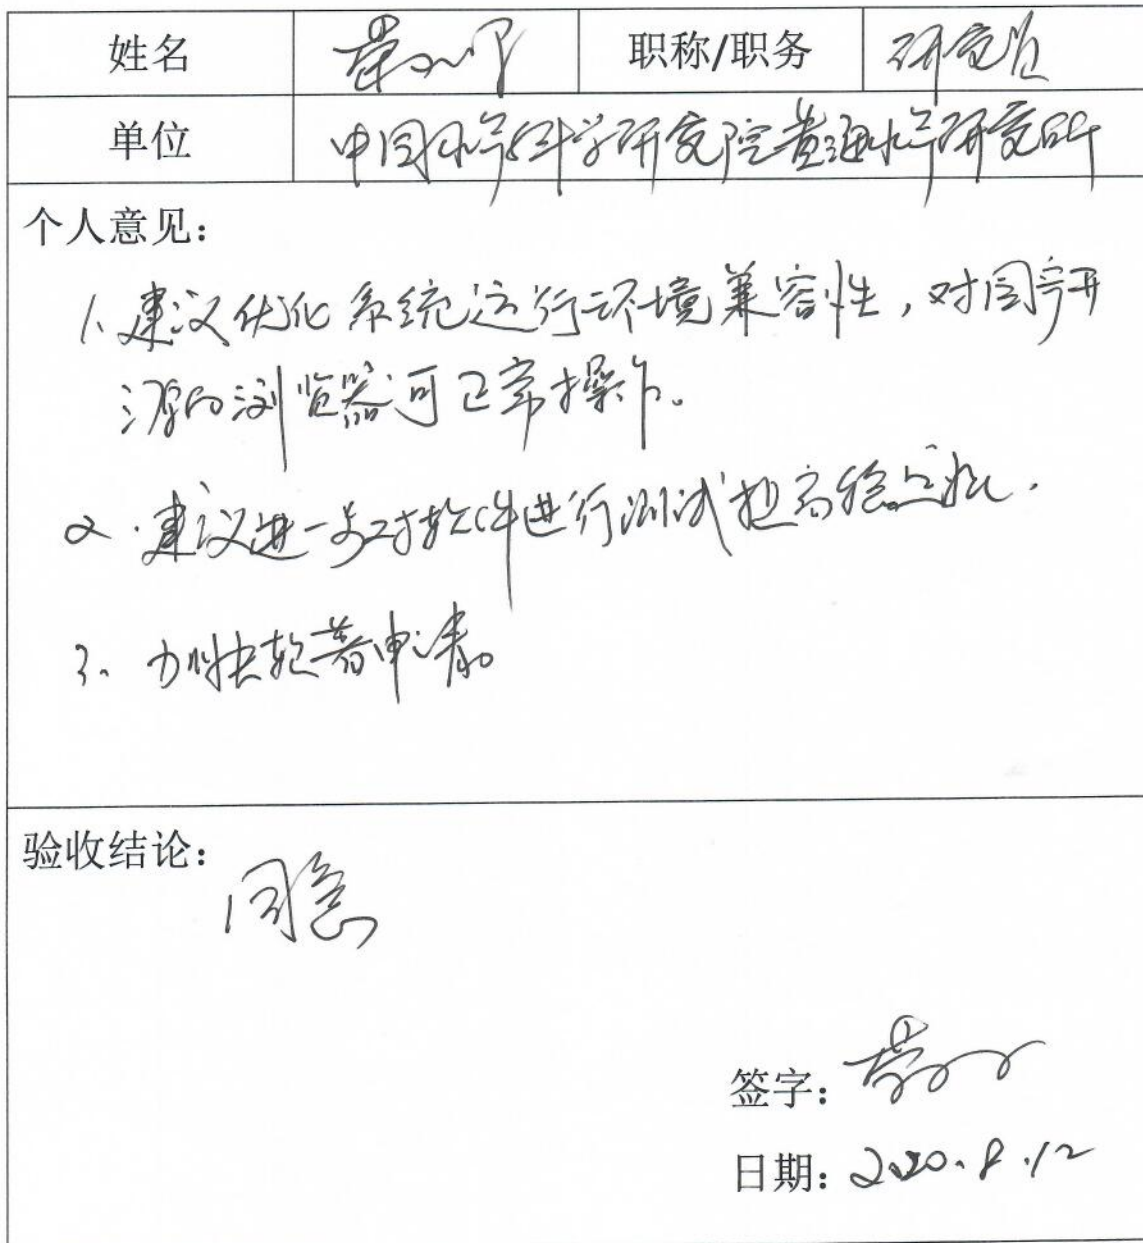 姓名 职称/职务 研究员
单位 中国水产科学研究院黄海水产研究所
个人意见：
1. 建议优化系统运行环境兼容性，对国产开
源的浏览器可正常操作。
2. 建议进一步对软件进行测试提高稳定性.
3. 加快软著申请。
验收结论：
同意
签字：
日期：2020.8.12